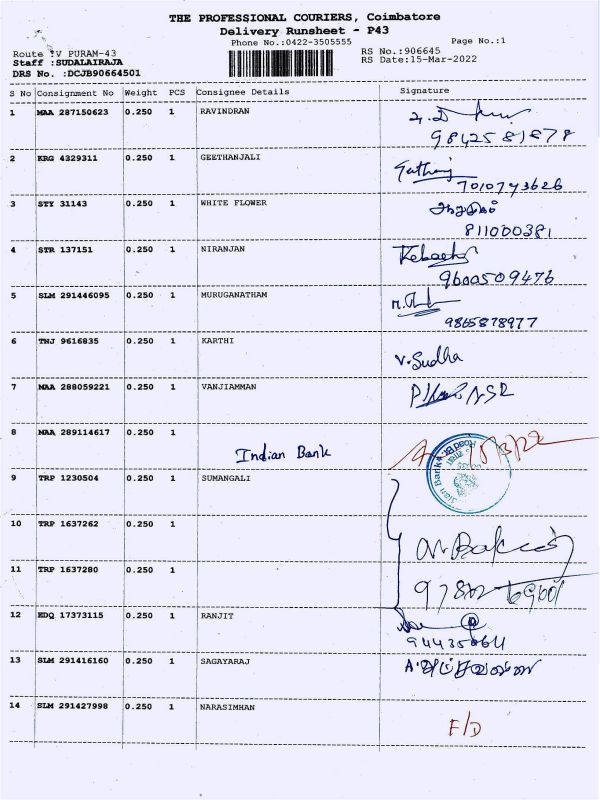 THE PROFESSIONAL COURIERS, Coimbatore
Delivery Runsheet - P43
Phone No.:0422-3505555
Page No.:1
Route :V PURAM-43
RS No.:906645
Staff :SUDALAIRAJA
RS Date:15-Mar-2022
DRS No. :DCJB90664501
S No Consignment No Weight PCS Consignee Details Signature
1 MAA 287150623 0.250 1 RAVINDRAN
2 KRG 4329311 0.250 1 GEETHANJALI
7010743626
3 STY 31143 0.250 1 WHITE FLOWER
811000381
4 STR 137151 0.250 1 NIRANJAN
9600509476
5 SLM 291446095 0.250 1 MURUGANATHAM
9865878977
6 TNJ 9616835 0.250 1 KARTHI
V. Sudha
7 MAA 288059221 0.250 1 VANJIAMMAN
8 MAA 289114617 0.250 1
Indian Bank
9 TRP 1230504 0.250 1 SUMANGALI
10 TRP 1637262 0.250 1
11 TRP 1637280 0.250 1
12 EDQ 17373115 0.250 1 RANJIT
13 SLM 291416160 0.250 1 SAGAYARAJ
14 SLM 291427998 0.250 1 NARASIMHAN
F/D